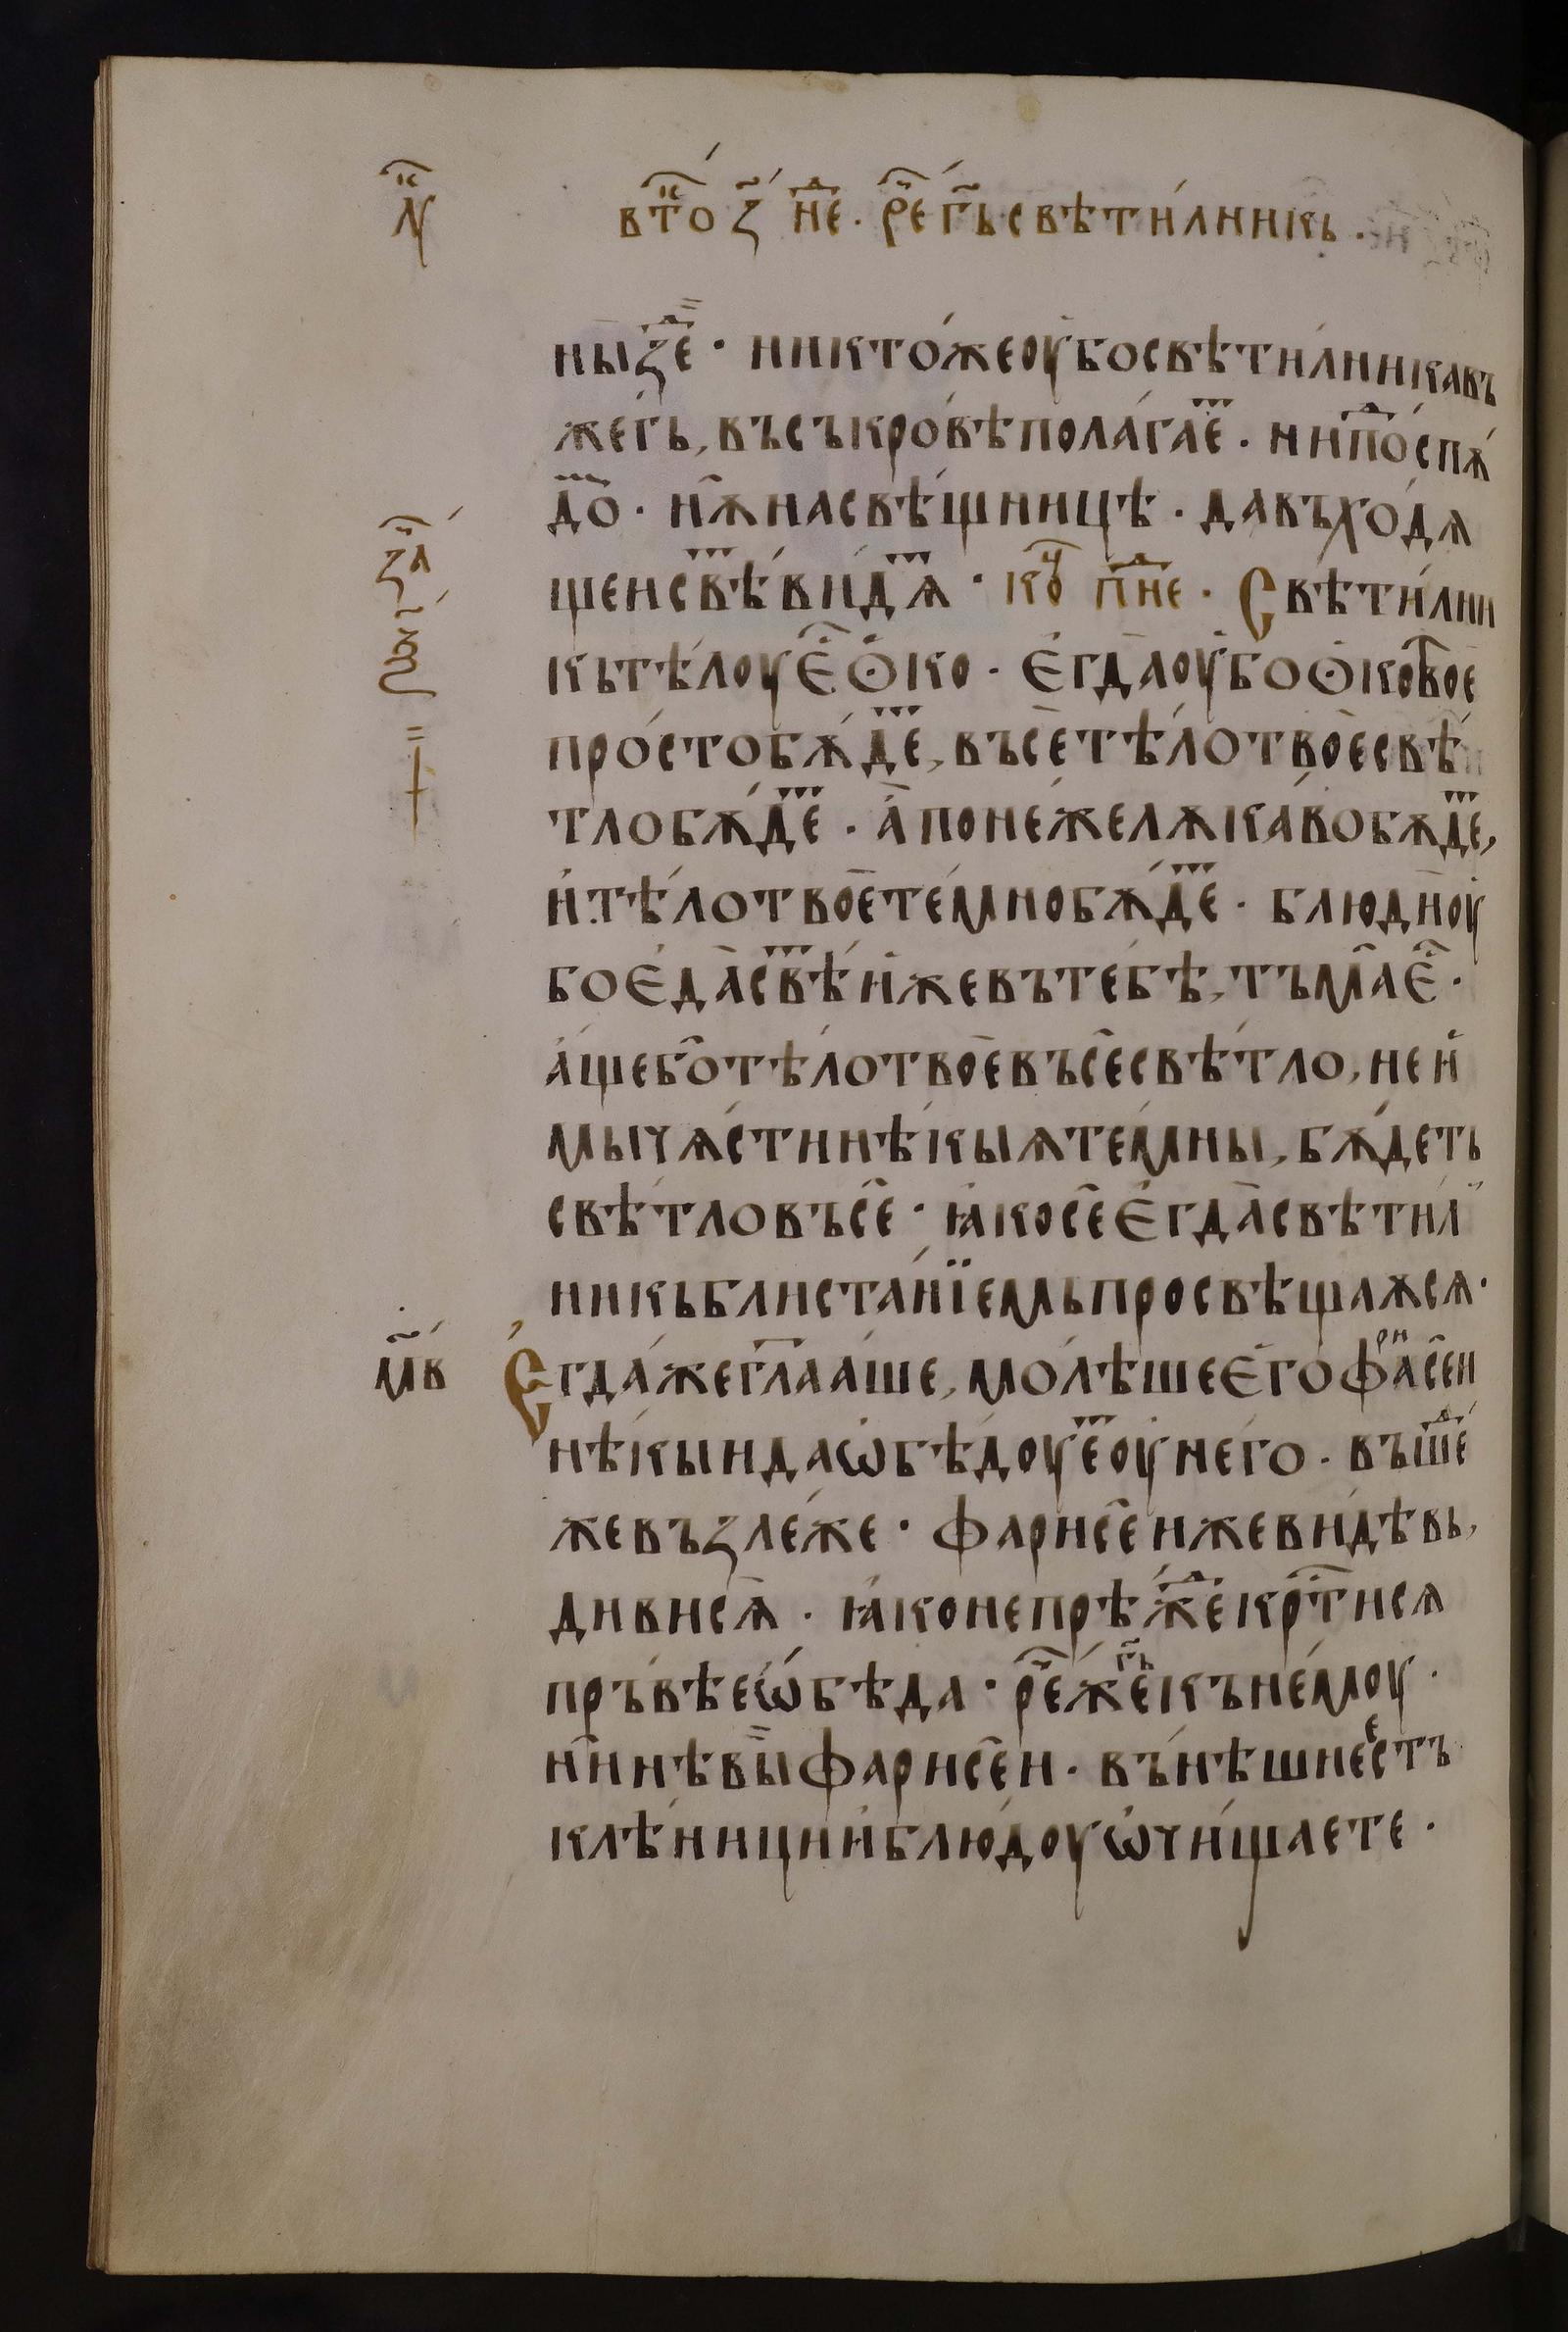 вт҃о з҃ не҃ . ре҃ г҃ь свѣти́лникь .
ны зе҃ · никто́жеоубосвѣти́лникавъ
же́гь , въсъкро́вѣпола́гае҃ . нипо҃спѫ́
до҃ · нѫ҃насвѣ́щницѣ · давъхо́дѧ
щеисвѣ҃ви́дѧ҃ · ко҃ пн҃е · Свѣти́лни
кьтѣ́лоуе҃ ѻ҆́ко · є҆гда̀оу҆боѻ҆́котвое
про́стобѫ́де҃ , въсѐтѣ́лотвоѐсвѣ́
тлобѫ́де҃ · а҆̀поне́желѫка́вобѫде҃ ,
и҆тѣ́лотвоѐте́мнобѫ́де҃ · блюдѝоу҆
боє҆да̀свѣ҃и҆жевътебѣ , тъма̀е҃ ·
а҆́щебо̀тѣ́лотвоѐвъсѐсвѣ́тло , неи҆
мы́чѧ́стинѣ́кыѧте́мны , бѫ́деть
свѣ́тловъсѐ · ꙗ҆́косѐє҆гда̀свѣти́л
никьблиста́нїемьпросвѣща́ѫсѧ ·
мв҃
Є҆гда́жегл҃аа́ше , молѣ́шеє҆гофарисе́и
нѣ́кыидаѡ҆бѣ́доуе҃оу҆него̀ · въше҃
жевъзле́же · фарисе́ижеви́дѣвь ,
дивисѧ̀ · ꙗ҆́конепрѣ́же҃кр҃тисѧ
пръ́вѣеѡ҆бѣ́да · ре҃жег҃ькънемоу̀ ·
ны́нѣвы̀фарисе́и · вънѣ́шнеестъ
клѣ́ницииблю́доуѡ҆чища́ете ·